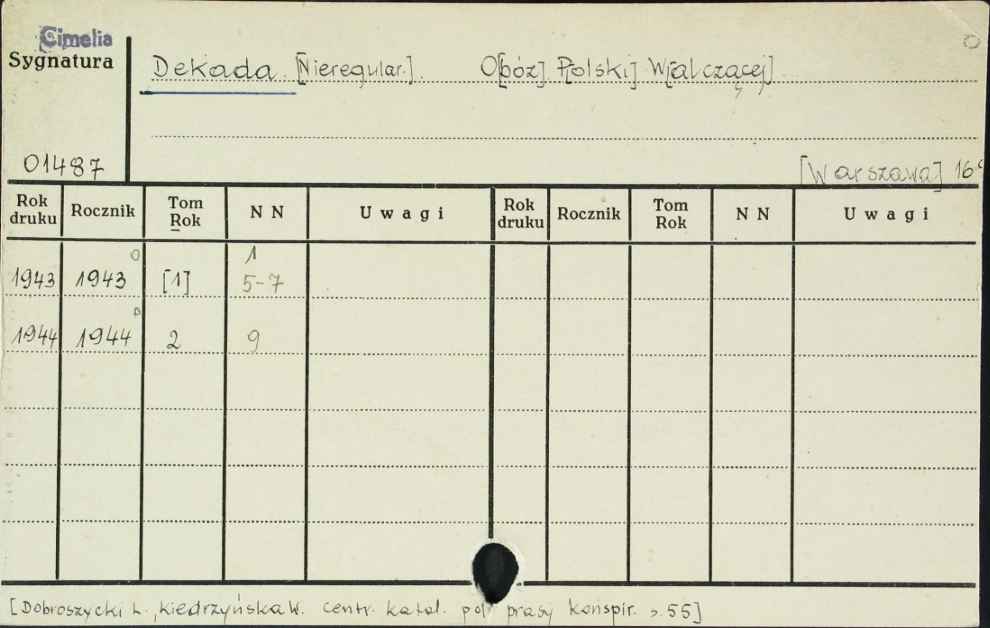 Cimelia
Sygnatura
Dekada. [Nieregular.]. O[bóz] P[olski] W[alczącej]
01487
[Warszawa] 16°
Rok druku Rocznik Tom Rok N N Uwagi Rok druku Rocznik Tom Rok N N Uwagi
1
1943 1943 [1] 5-7
1944 1944 2 9
[Dobroszycki L., Kiedrzyńska W. centr. katal. pol. prasy konspir. s. 55]